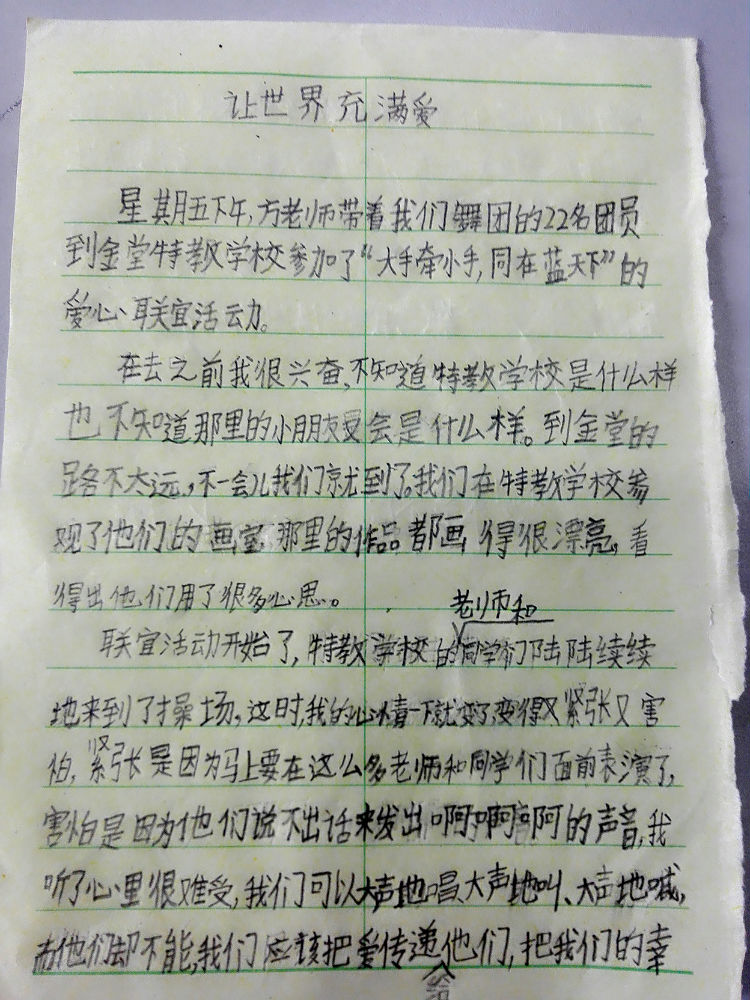 让世界充满爱
星期五下午,方老师带着我们舞团的22名团员
到金堂特教学校参加了“大手牵小手,同在蓝天下”的
爱心联宜活动。
在去之前我很兴奋,不知道特教学校是什么样
也不知道那里的小朋友又会是什么样。到金堂的
路不太远,不一会儿我们就到了。我们在特教学校参
观了他们的画室,那里的作品都画得很漂亮,看
得出他们用了很多心思。
老师和
联宜活动开始了,特教学校的同学们陆陆续续
地来到了操场,这时,我的心情一下就变了,变得又紧张又害
怕,紧张是因为马上要在这么多老师和同学们面前表演了,
害怕是因为他们说不出话来发出啊啊啊的声音,我
听了心里很难受,我们可以大声地唱、大声地叫、大声地喊,
而他们却不能,我们应该把爱传递他们,把我们的幸
给